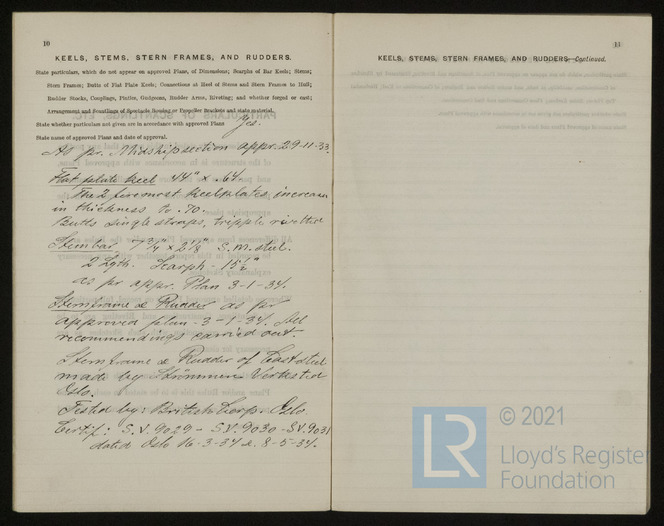 10
KEELS, STEMS, STERN FRAMES, AND RUDDERS.
State particulars, which do not appear on approved Plans, of Dimensions; Scarphs of Bar Keels; Stems;
Stern Frames; Butts of Flat Plate Keels; Connections at Heel of Stems and Stern Frames to Hull;
Rudder Stocks, Couplings, Pintles, Gudgeons, Rudder Arms, Riveting; and whether forged or cast;
Arrangement and Scantlings of Spectacle Bossing or Propeller Brackets and state material.
State whether particulars not given are in accordance with approved Plans Yes.
State name of approved Plans and date of approval.
As pr. Midship section appr. 29-11-33.
Flat plate keel 44" x .64.
The 2 foremost keelplates increase
in thickness to .70.
Butts single straps, tripple rivetted
Stembar 7 3/4" x 2 1/8" S.M. steel.
2 Lgth. Scarph - 15 1/2"
as pr appr. Plan 3-1-34.
Sternframe & Rudder as pr
approved plan - 3-1-34. All
recommendings carried out.
Sternframe & Rudder of Caststeel
made by Strömmens Verksted
Oslo.
Tested by: British Corp. Oslo.
Certif: S.V. 9029 - S.V. 9030 - S.V. 9031
dated Oslo 16-3-34 & 8-5-34.
11
KEELS, STEMS, STERN FRAMES, AND RUDDERS—Continued.
LR
© 2021
Lloyd's Register
Foundation